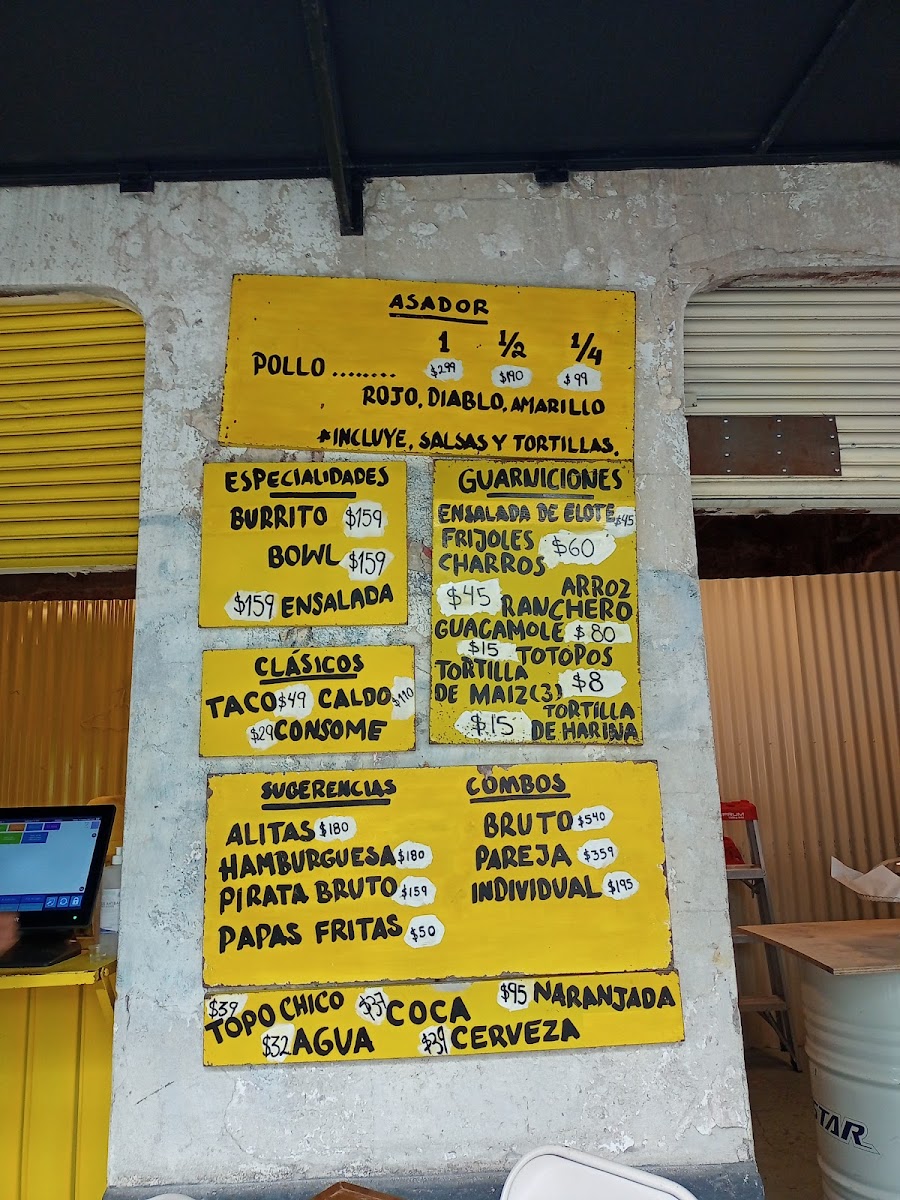 ASADOR
1 1/2 1/4
POLLO ........ $299 $190 $99
ROJO, DIABLO, AMARILLO
*INCLUYE, SALSAS Y TORTILLAS.
ESPECIALIDADES
BURRITO $159
BOWL $159
$159 ENSALADA
GUARNICIONES
ENSALADA DE ELOTE $45
FRIJOLES
CHARROS $60
ARROZ
$45 RANCHERO
GUACAMOLE $80
$15 TOTOPOS
TORTILLA
DE MAIZ(3) $8
TORTILLA
$.15 DE HARINA
CLÁSICOS
TACO $49 CALDO $110
$29 CONSOME
SUGERENCIAS
ALITAS $180
HAMBURGUESA $180
PIRATA BRUTO $159
PAPAS FRITAS $50
COMBOS
BRUTO $540
PAREJA $359
INDIVIDUAL $195
$39 TOPO CHICO
$37 COCA
$95 NARANJADA
$32 AGUA
$39 CERVEZA
STAR